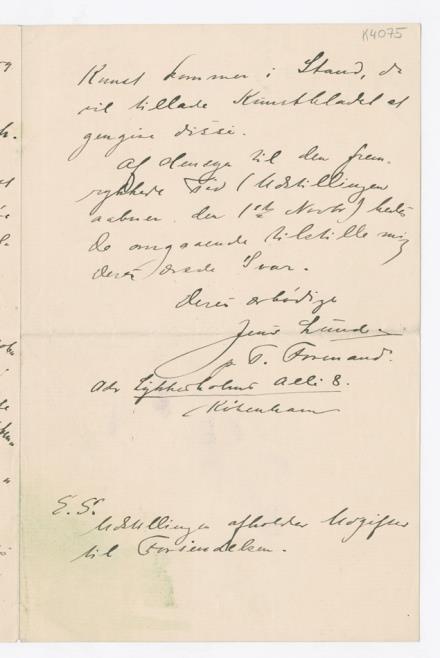 K4075
Kunst kommer i Stand, da
vil tillade Kunstbladet at
gengive disse.
Af Hensyn til den frem-
rykkede Tid (Udstillingen
aabner den 1ste Novbr) bedes
De omgaaende tilstille mig
Deres ærede Svar.
Deres ærbødige
Jens Lund.
p. T. Formand.
Adr Lykkesholms Allé 8.
København
E. S.
Udstillingen afholder Udgifter
til Forsendelsen.